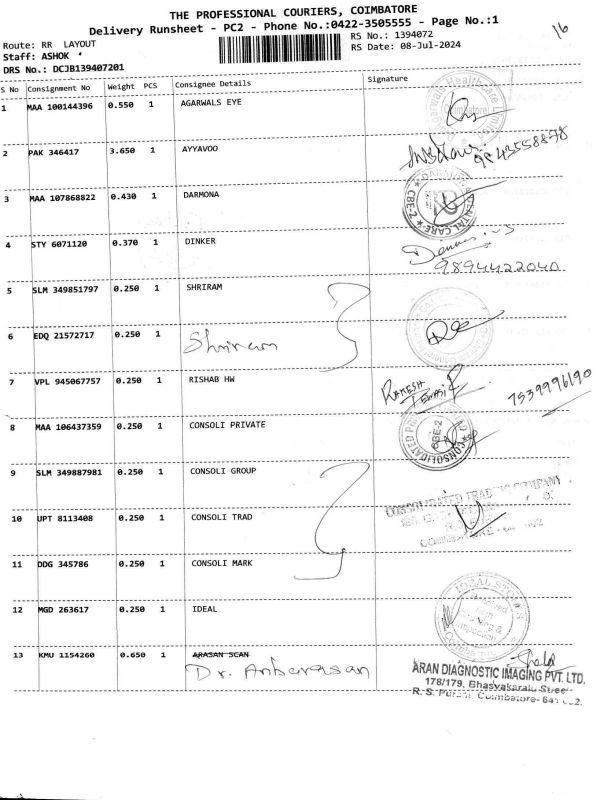 THE PROFESSIONAL COURIERS, COIMBATORE
Delivery Runsheet - PC2 - Phone No.:0422-3505555 - Page No.:1
16
Route: RR LAYOUT
RS No.: 1394072
Staff: ASHOK
RS Date: 08-Jul-2024
DRS No.: DCJB139407201
S No Consignment No Weight PCS Consignee Details Signature
1 MAA 100144396 0.550 1 AGARWALS EYE
2 PAK 346417 3.650 1 AYYAVOO
9843558878
3 MAA 107868822 0.430 1 DARMONA
CBE-2
4 STY 6071120 0.370 1 DINKER
9894422040
5 SLM 349851797 0.250 1 SHRIRAM
6 EDQ 21572717 0.250 1 Shriram
7 VPL 945067757 0.250 1 RISHAB HW RAKESH DEWASI 7539996190
8 MAA 106437359 0.250 1 CONSOLI PRIVATE
CONSOLIDATED CBE-2
9 SLM 349887981 0.250 1 CONSOLI GROUP
CONSOLIDATED TRADING COMPANY
10 UPT 8113408 0.250 1 CONSOLI TRAD
11 DDG 345786 0.250 1 CONSOLI MARK
12 MGD 263617 0.250 1 IDEAL
13 KMU 1154260 0.650 1 ARASAN SCAN
Dr. Anbarasan
ARAN DIAGNOSTIC IMAGING PVT. LTD.
178/179, Bhasyakaralu Street
R. S. Puram, Coimbatore-